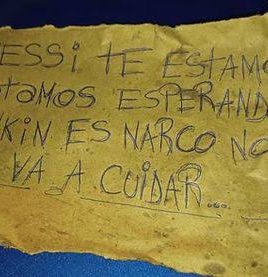 ESSI TE ESTAMO
TAMOS ESPERAND
KIN ES NARCO NO
VA A CUIDAR...